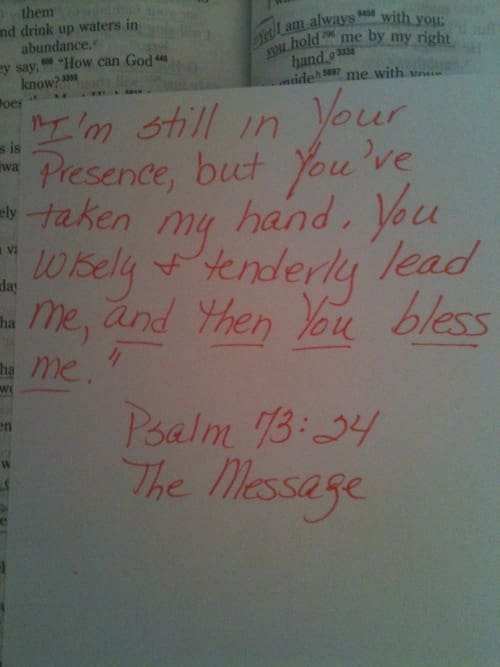 them
nd drink up waters in
abundance.
ey say, "How can God
know?
I am always with you;
you hold me by my right
hand.
me with your
"I'm still in Your
Presence, but You've
taken my hand. You
wisely & tenderly lead
me, and then You bless
me."
Psalm 73:24
The Message